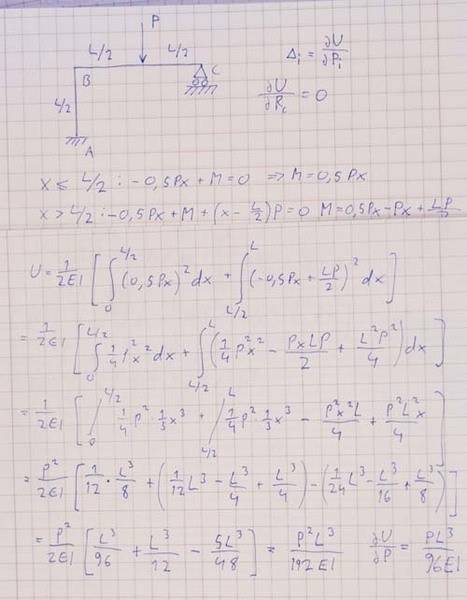 P
L/2 L/2
Δi = ∂U/∂Pi
B C
L/2
∂U/∂Rc = 0
A
x ≤ L/2 : -0,5Px + M = 0 ⇒ M = 0,5Px
x > L/2 : -0,5Px + M + (x - L/2)P = 0 M = 0,5Px - Px + LP/2
U = 1/2EI [ ∫₀^{L/2} (0,5Px)² dx + ∫_{L/2}^{L} (-0,5Px + LP/2)² dx ]
= 1/2EI [ ∫₀^{L/2} 1/4 P²x² dx + ∫_{L/2}^{L} (1/4 P²x² - PxLP/2 + L²P²/4) dx ]
= 1/2EI [ |₀^{L/2} 1/4 P² · 1/3 x³ + |_{L/2}^{L} 1/4 P² · 1/3 x³ - P²x²L/4 + P²L²x/4 ]
= P²/2EI [ 1/12 · L³/8 + (1/12 L³ - L³/4 + L³/4) - (1/24 L³ - L³/16 + L³/8) ]
= P²/2EI [ L³/96 + L³/12 - 5L³/48 ] = P²L³/192EI ∂U/∂P = PL³/96EI